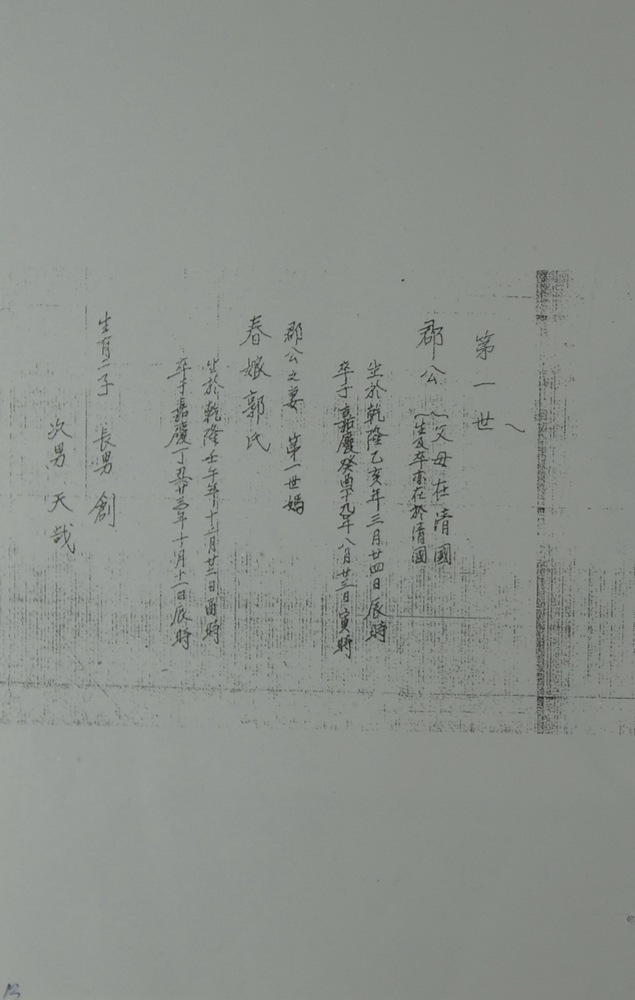 第一世
郡公
(父母在清國
(生及卒亦在於清國
生於乾隆乙亥年三月廿四日辰時
卒于嘉慶癸酉十九年八月廿三日寅時
郡公之妻 第一世媽
春娘郭氏
生於乾隆壬午年十二月廿二日酉時
卒于嘉慶丁丑廿三年十月十一日辰時
生有二子 長男 創
次男 天哉